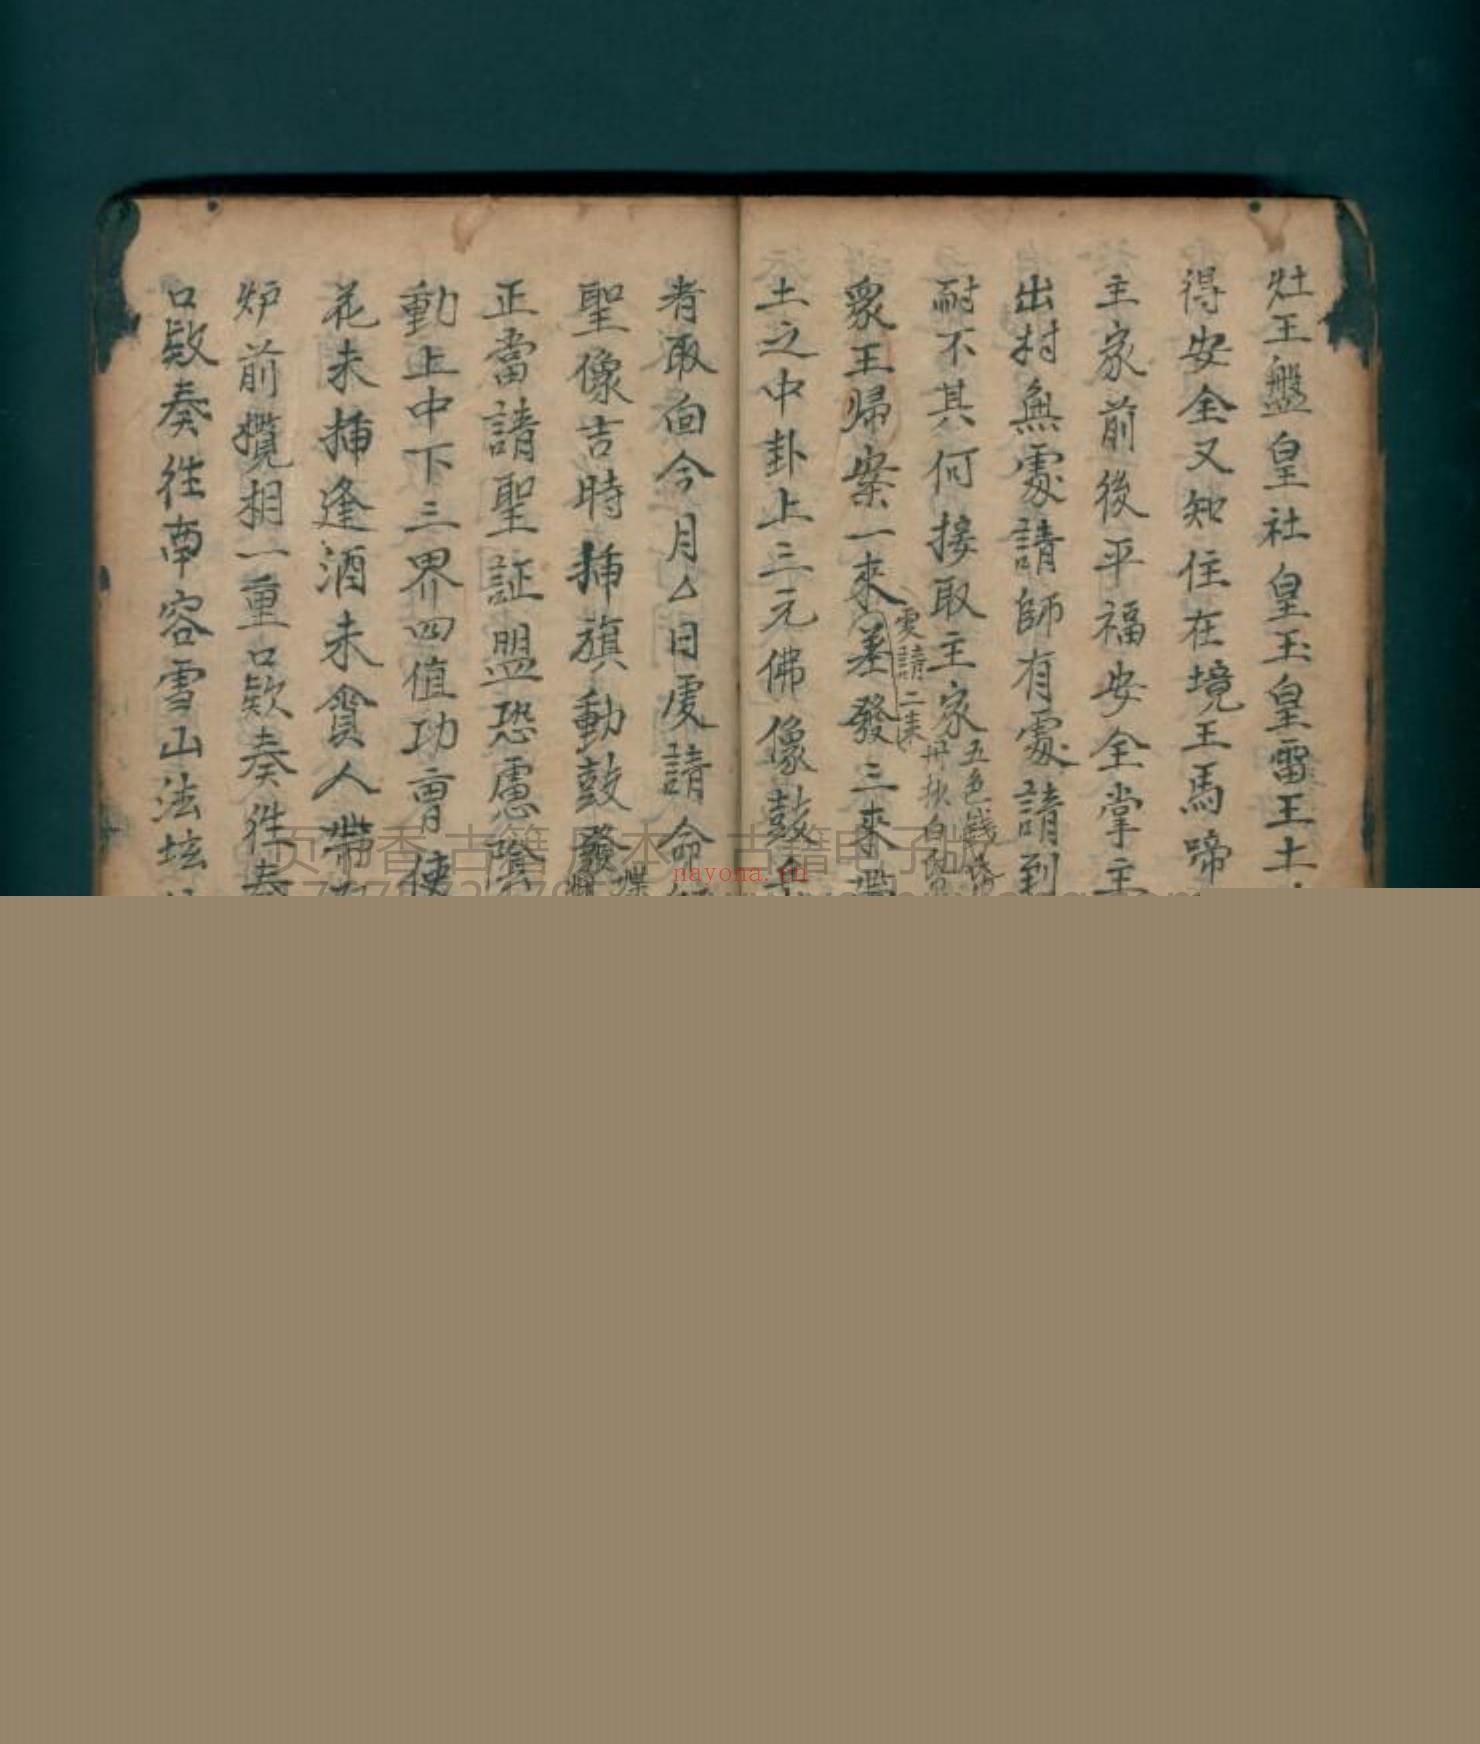 灶王盤皇社皇玉皇雷王土
得安全又知住在境王馬啼
主家前後平福安全掌主
出村無處請師有處請到
耐不其何接取主家
五色錢
衆王歸案一來墓發三來
處請二来
土之中卦上三元佛像鼓
者取向今月厶日虔請命
聖像吉時揷旗動鼓發
正當請聖証盟恐慮
動上中下三界四值功曹使
花未揷逢酒未賞人帶
炉前攬相一重口欵奏往奏
口欵奏往南容雪山法坛
nayona.cn